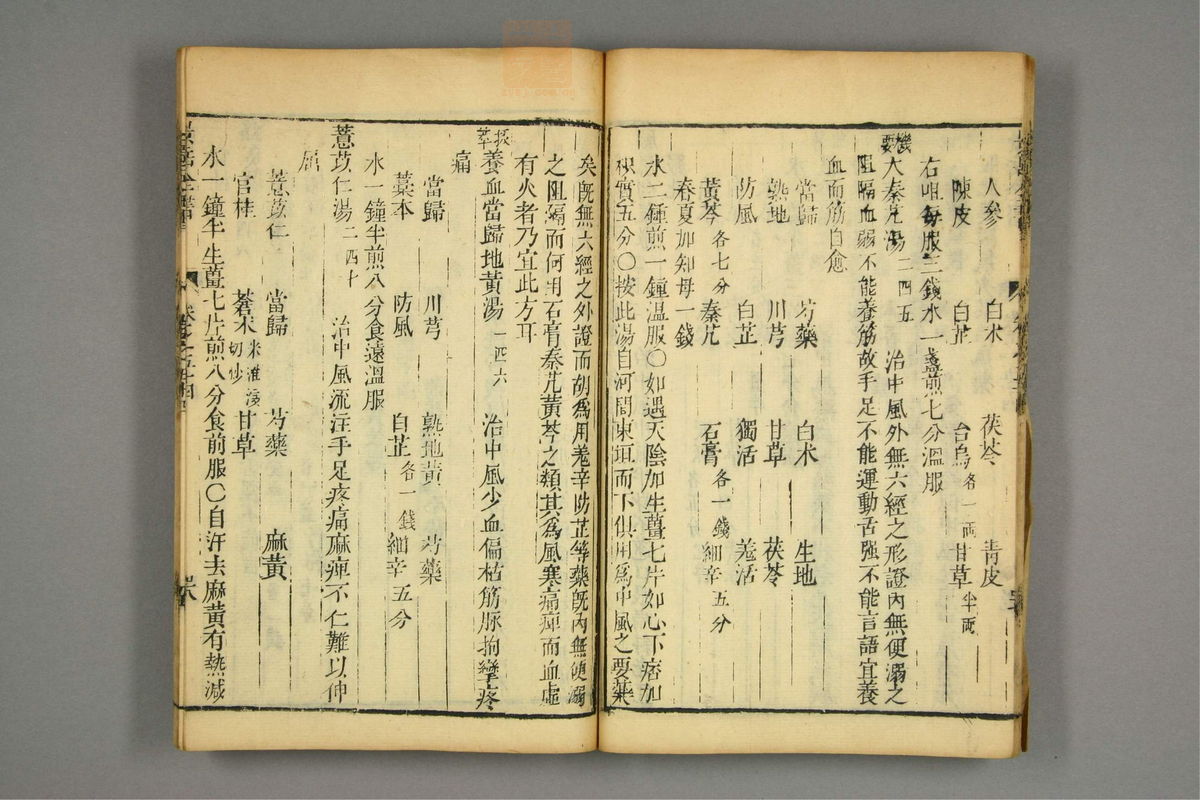 人參 白术 茯苓 青皮
陳皮 白芷 台烏各一兩 甘草半兩
右咀每服三錢水一盞煎七分溫服
機要大秦艽湯二四五 治中風外無六經之形證內無便溺之
阻隔血弱不能養筋故手足不能運動舌强不能言語宜養
血而筋自愈
當歸 芍藥 白术 生地
熟地 川芎 甘草 茯苓
防風 白芷 獨活 羗活
黃芩各七分 秦艽 石膏各一錢 細辛五分
春夏加知母一錢
水二鍾煎一鍾溫服〇如遇天陰加生薑七片如心下痞加
枳實五分〇按此湯自河間東垣而下俱用爲中風之要藥
矣旣無六經之外證而胡爲用羗辛防芷等藥旣內無便溺
之阻隔而何用石膏秦艽黃芩之類其爲風寒痛痺而血虛
有火者乃宜此方耳
拔萃養血當歸地黃湯一四六 治中風少血偏枯筋脈拘攣疼
痛
當歸 川芎 熟地黃 芍藥
藁本 防風 白芷各一錢 細辛五分
水一鐘半煎八分食遠溫服
薏苡仁湯二四十 治中風流注手足疼痛麻痺不仁難以伸
屈
薏苡仁 當歸 芍藥 麻黃
官桂 蒼术米泔浸切炒 甘草
水一鐘半生薑七片煎八分食前服〇自汗去麻黃有熱減